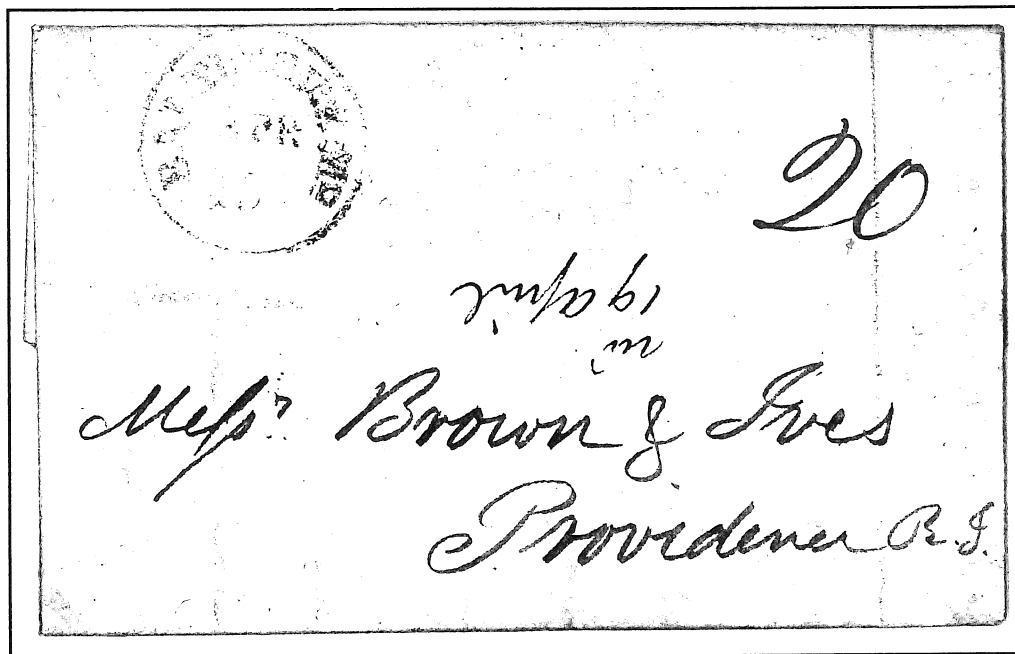 APR
20
19 april
Messrs. Brown & Ives
Providence R.I.